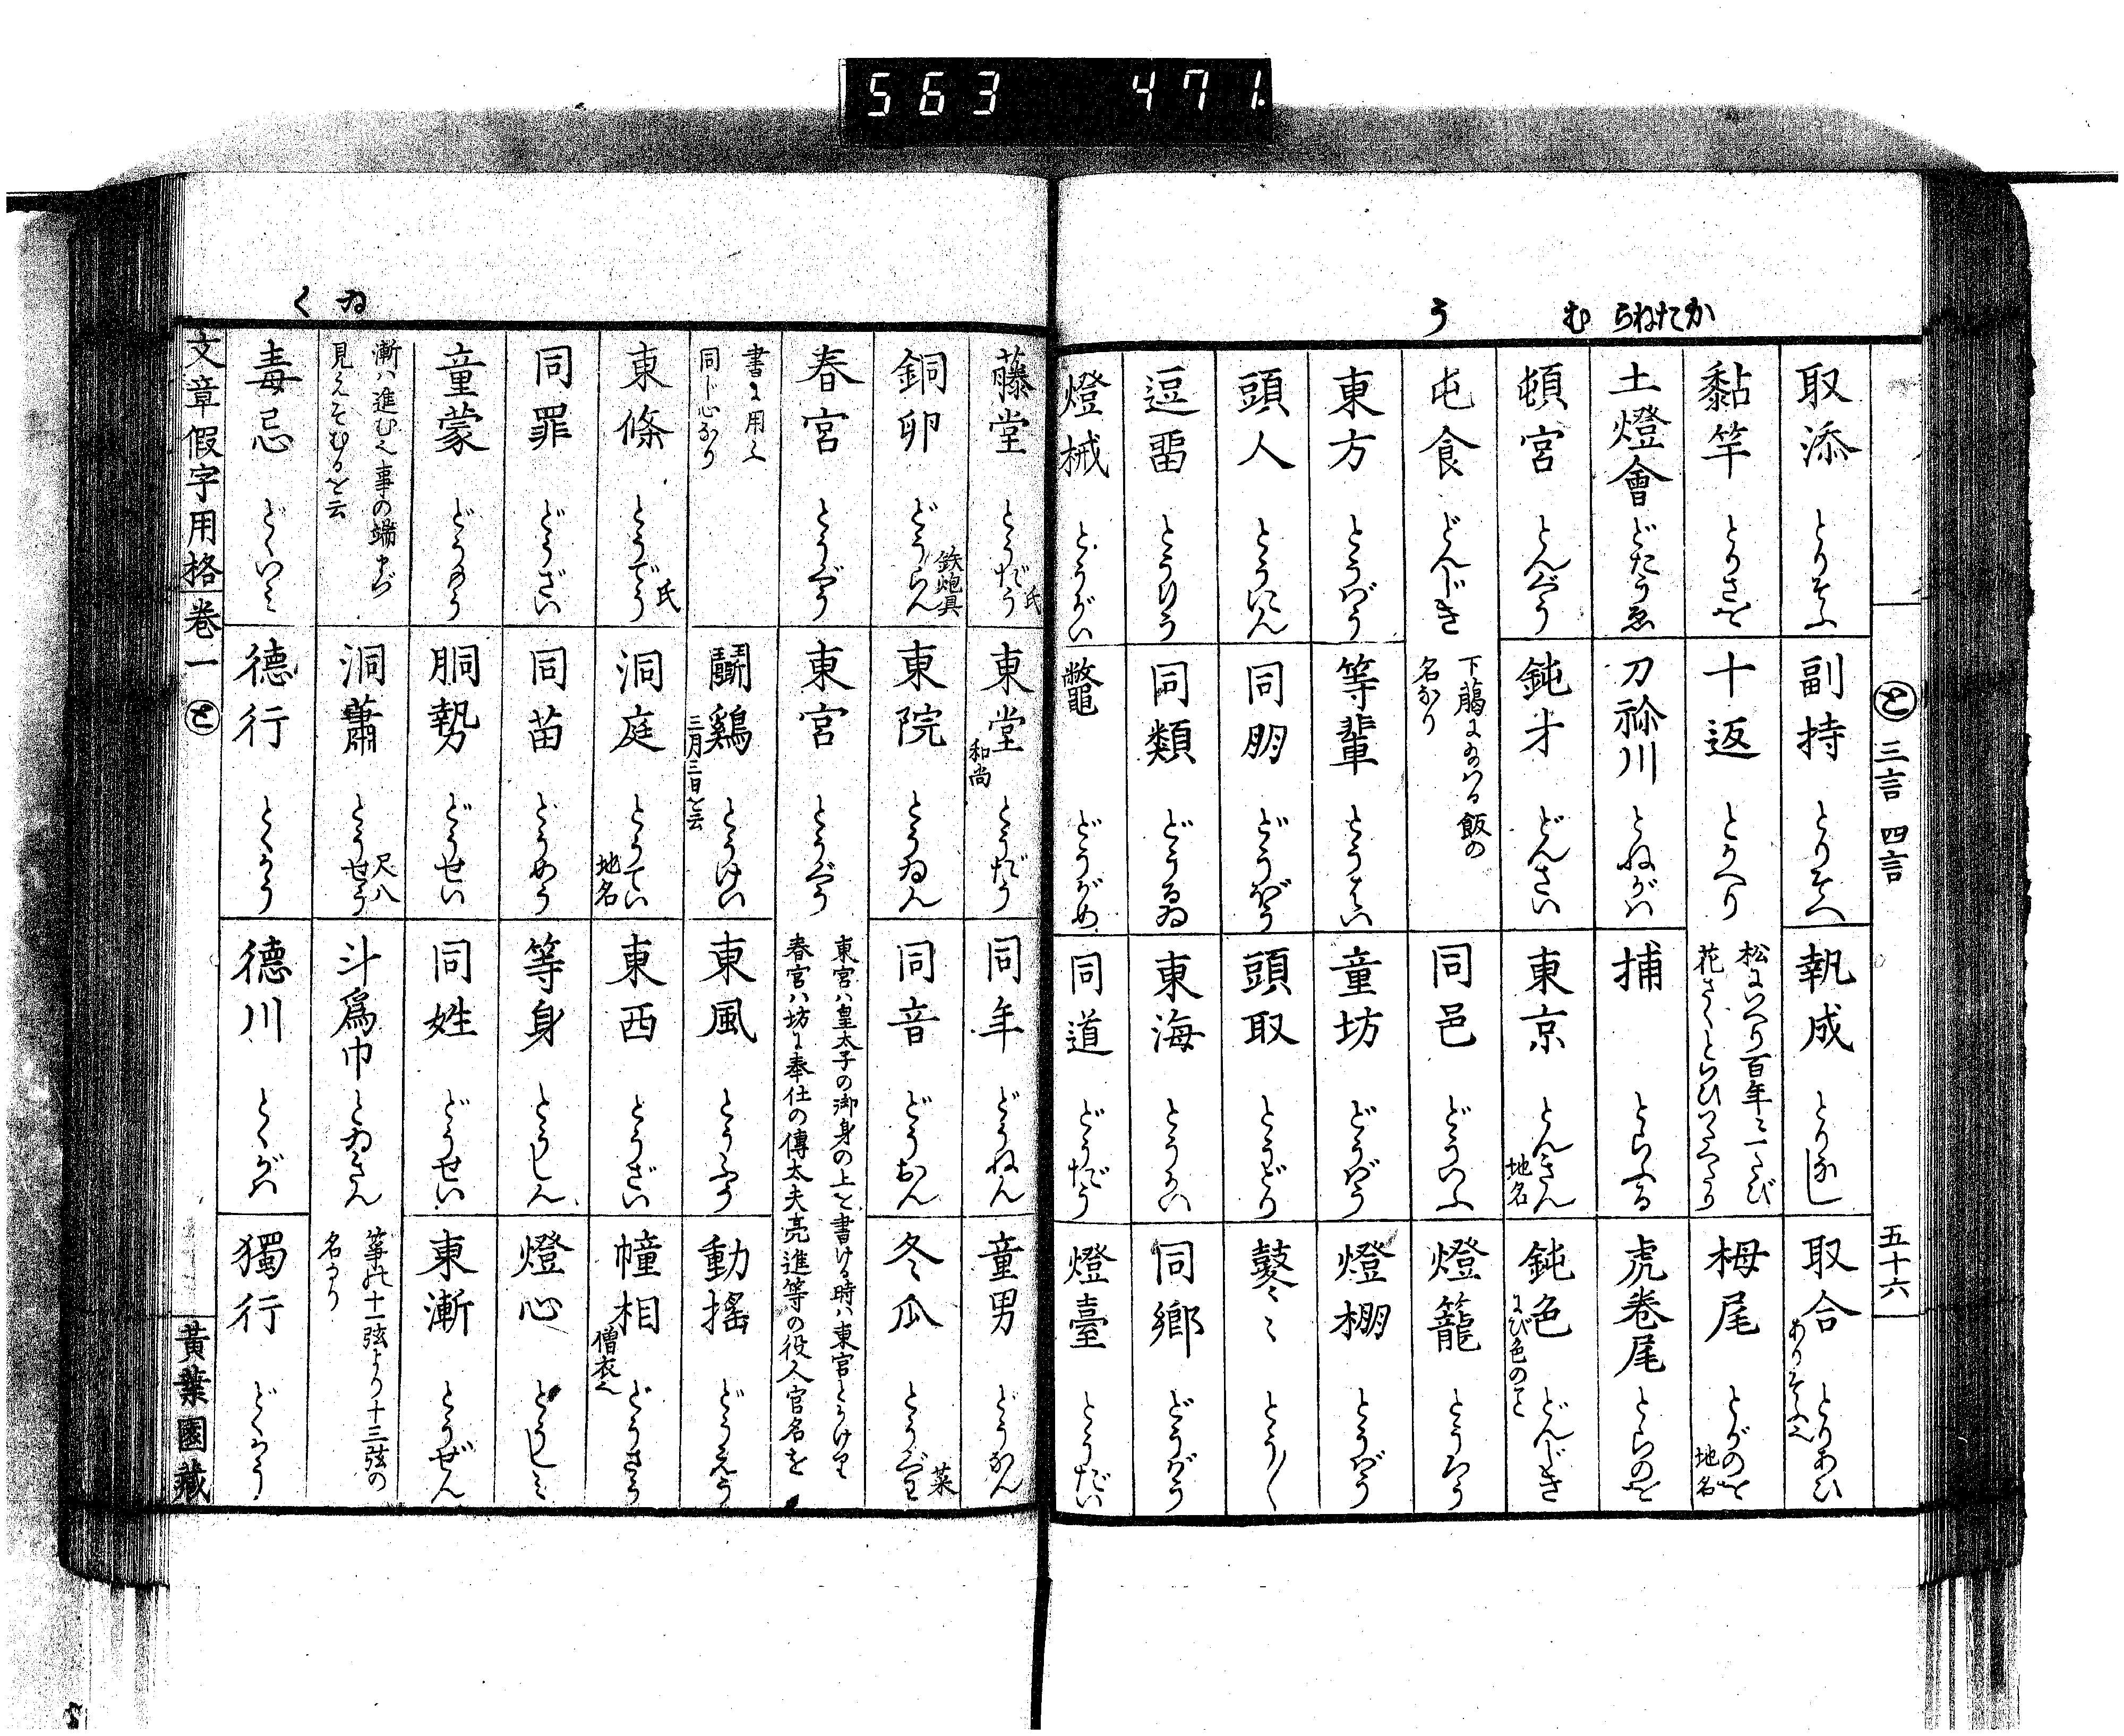 563 471.
かたねら む う
と 三言 四言 五十六
取添 とりそふ 副持 とりそへ 執成 とりなし 取合 とりあひ ありそふ也
黏竿 とりさを 十返 とかへり 松にいへり百年に一たび
花さくといひつたへたり
栂尾 とがのを 地名
土燈會 どたうゑ 刀祢川 とねがは 捕 とらふる 虎巻尾 とらのを
頓宮 とんぐう 鈍才 どんさい 東京 とんきん 地名 鈍色 どんじき にび色のこと
屯食 どんじき 下﨟にたまはる飯の
名なり
同邑 どういふ 燈籠 とうろう
東方 とうばう 等輩 とうはい 童坊 どうばう 燈棚 とうだう
頭人 とうにん 同朋 どうばう 頭取 とうどり 鼕〻 とう〳〵
逗畱 とうりう 同類 どうるゐ 東海 とうかい 同郷 どうがう
燈械 とうがい 鼈 どうがめ 同道 どうだう 燈臺 とうだい
ゐ く
藤堂 とうだう 氏 東堂 とうだう 和尚 同年 どうねん 童男 どうなん
銅卵 どうらん 鉄炮具 東院 とうゐん 同音 どうおん 冬瓜 とうぐわ 菜
春宮 とうぐう 東宮 とうぐう 東宮ハ皇太子の御身の上を書ける時ハ東宮とかけり
春宮ハ坊に奉仕の傳太夫亮進等の役人官名を
書に用ふ
同じ心なり
鬪鷄 とうけい 三月三日を云 東風 とうふう 動搖 どうえう
東條 とうでう 氏 洞庭 とうてい 地名 東西 とうざい 幢相 どうさう 僧衣也
同罪 どうざい 同苗 どうめう 等身 とうしん 燈心 とうしミ
童蒙 どうもう 胴勢 どうせい 同姓 どうせい 東漸 とうぜん
漸ハ進む也事の端まづ
見えそむるを云
洞蕭 とうせう 尺八 斗爲巾 とゐきん 箏の十一弦より十三弦の
名なり
毒忌 どくいミ 德行 とくかう 德川 とくがは 獨行 どくかう
文章假字用格 卷一 と 黃葉園藏